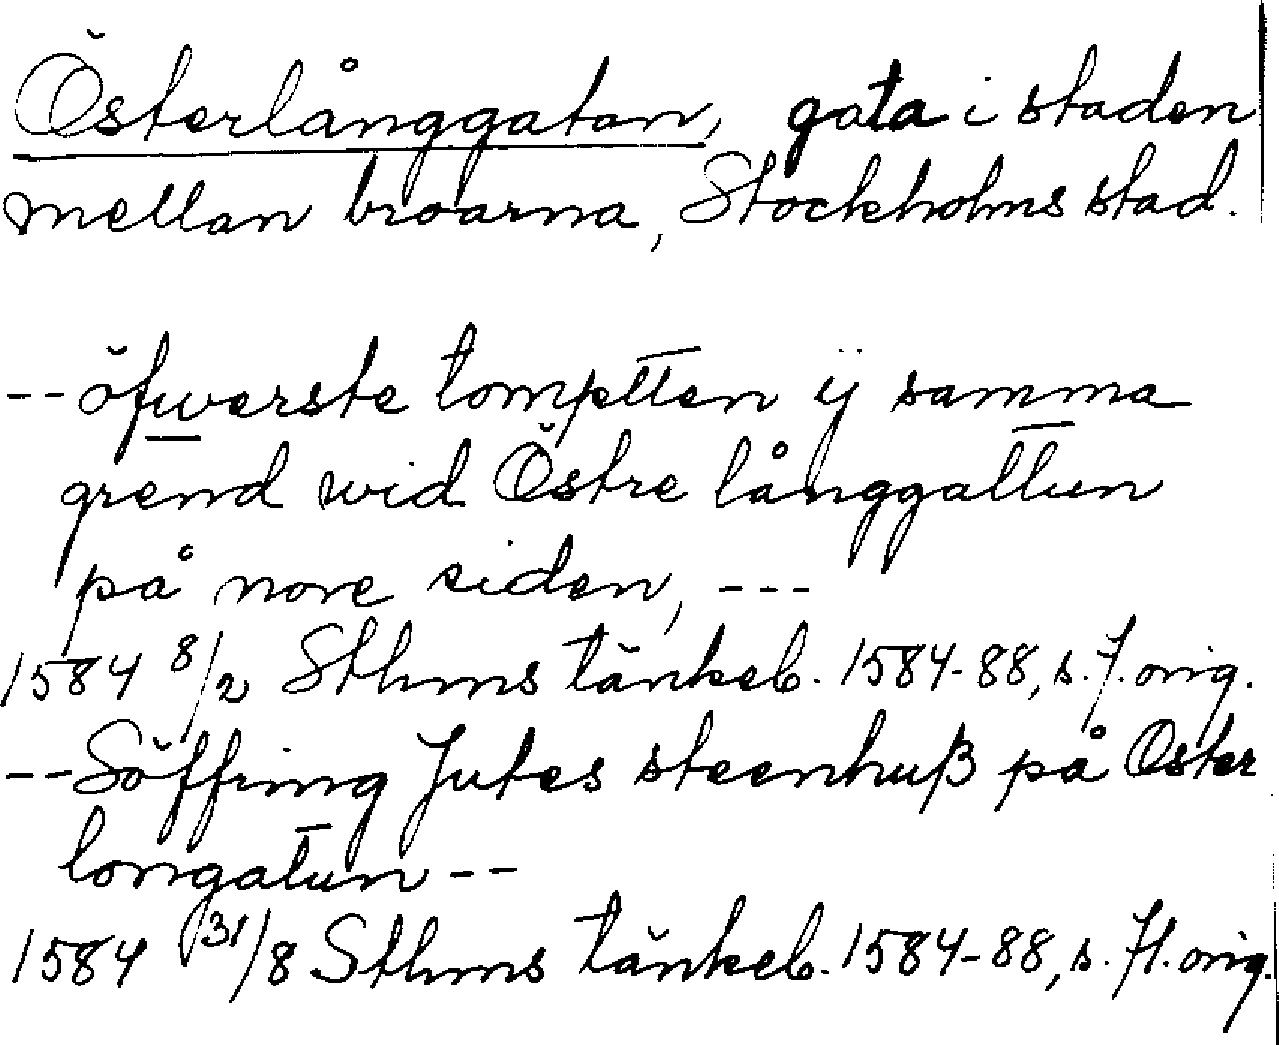 Österlånggatan, gata i staden
mellan broarna, Stockholms stad.
-- öfwerste tomptten ij samma
grend wid Östre långgattun
på nore siden, ---
1584 8/2 Sthms tänkeb. 1584-88, s. 7. orig.
-- Söffring Jutes steenhuß på Öster
longatun --
1584 31/8 Sthms tänkeb. 1584-88, s. 71. orig.